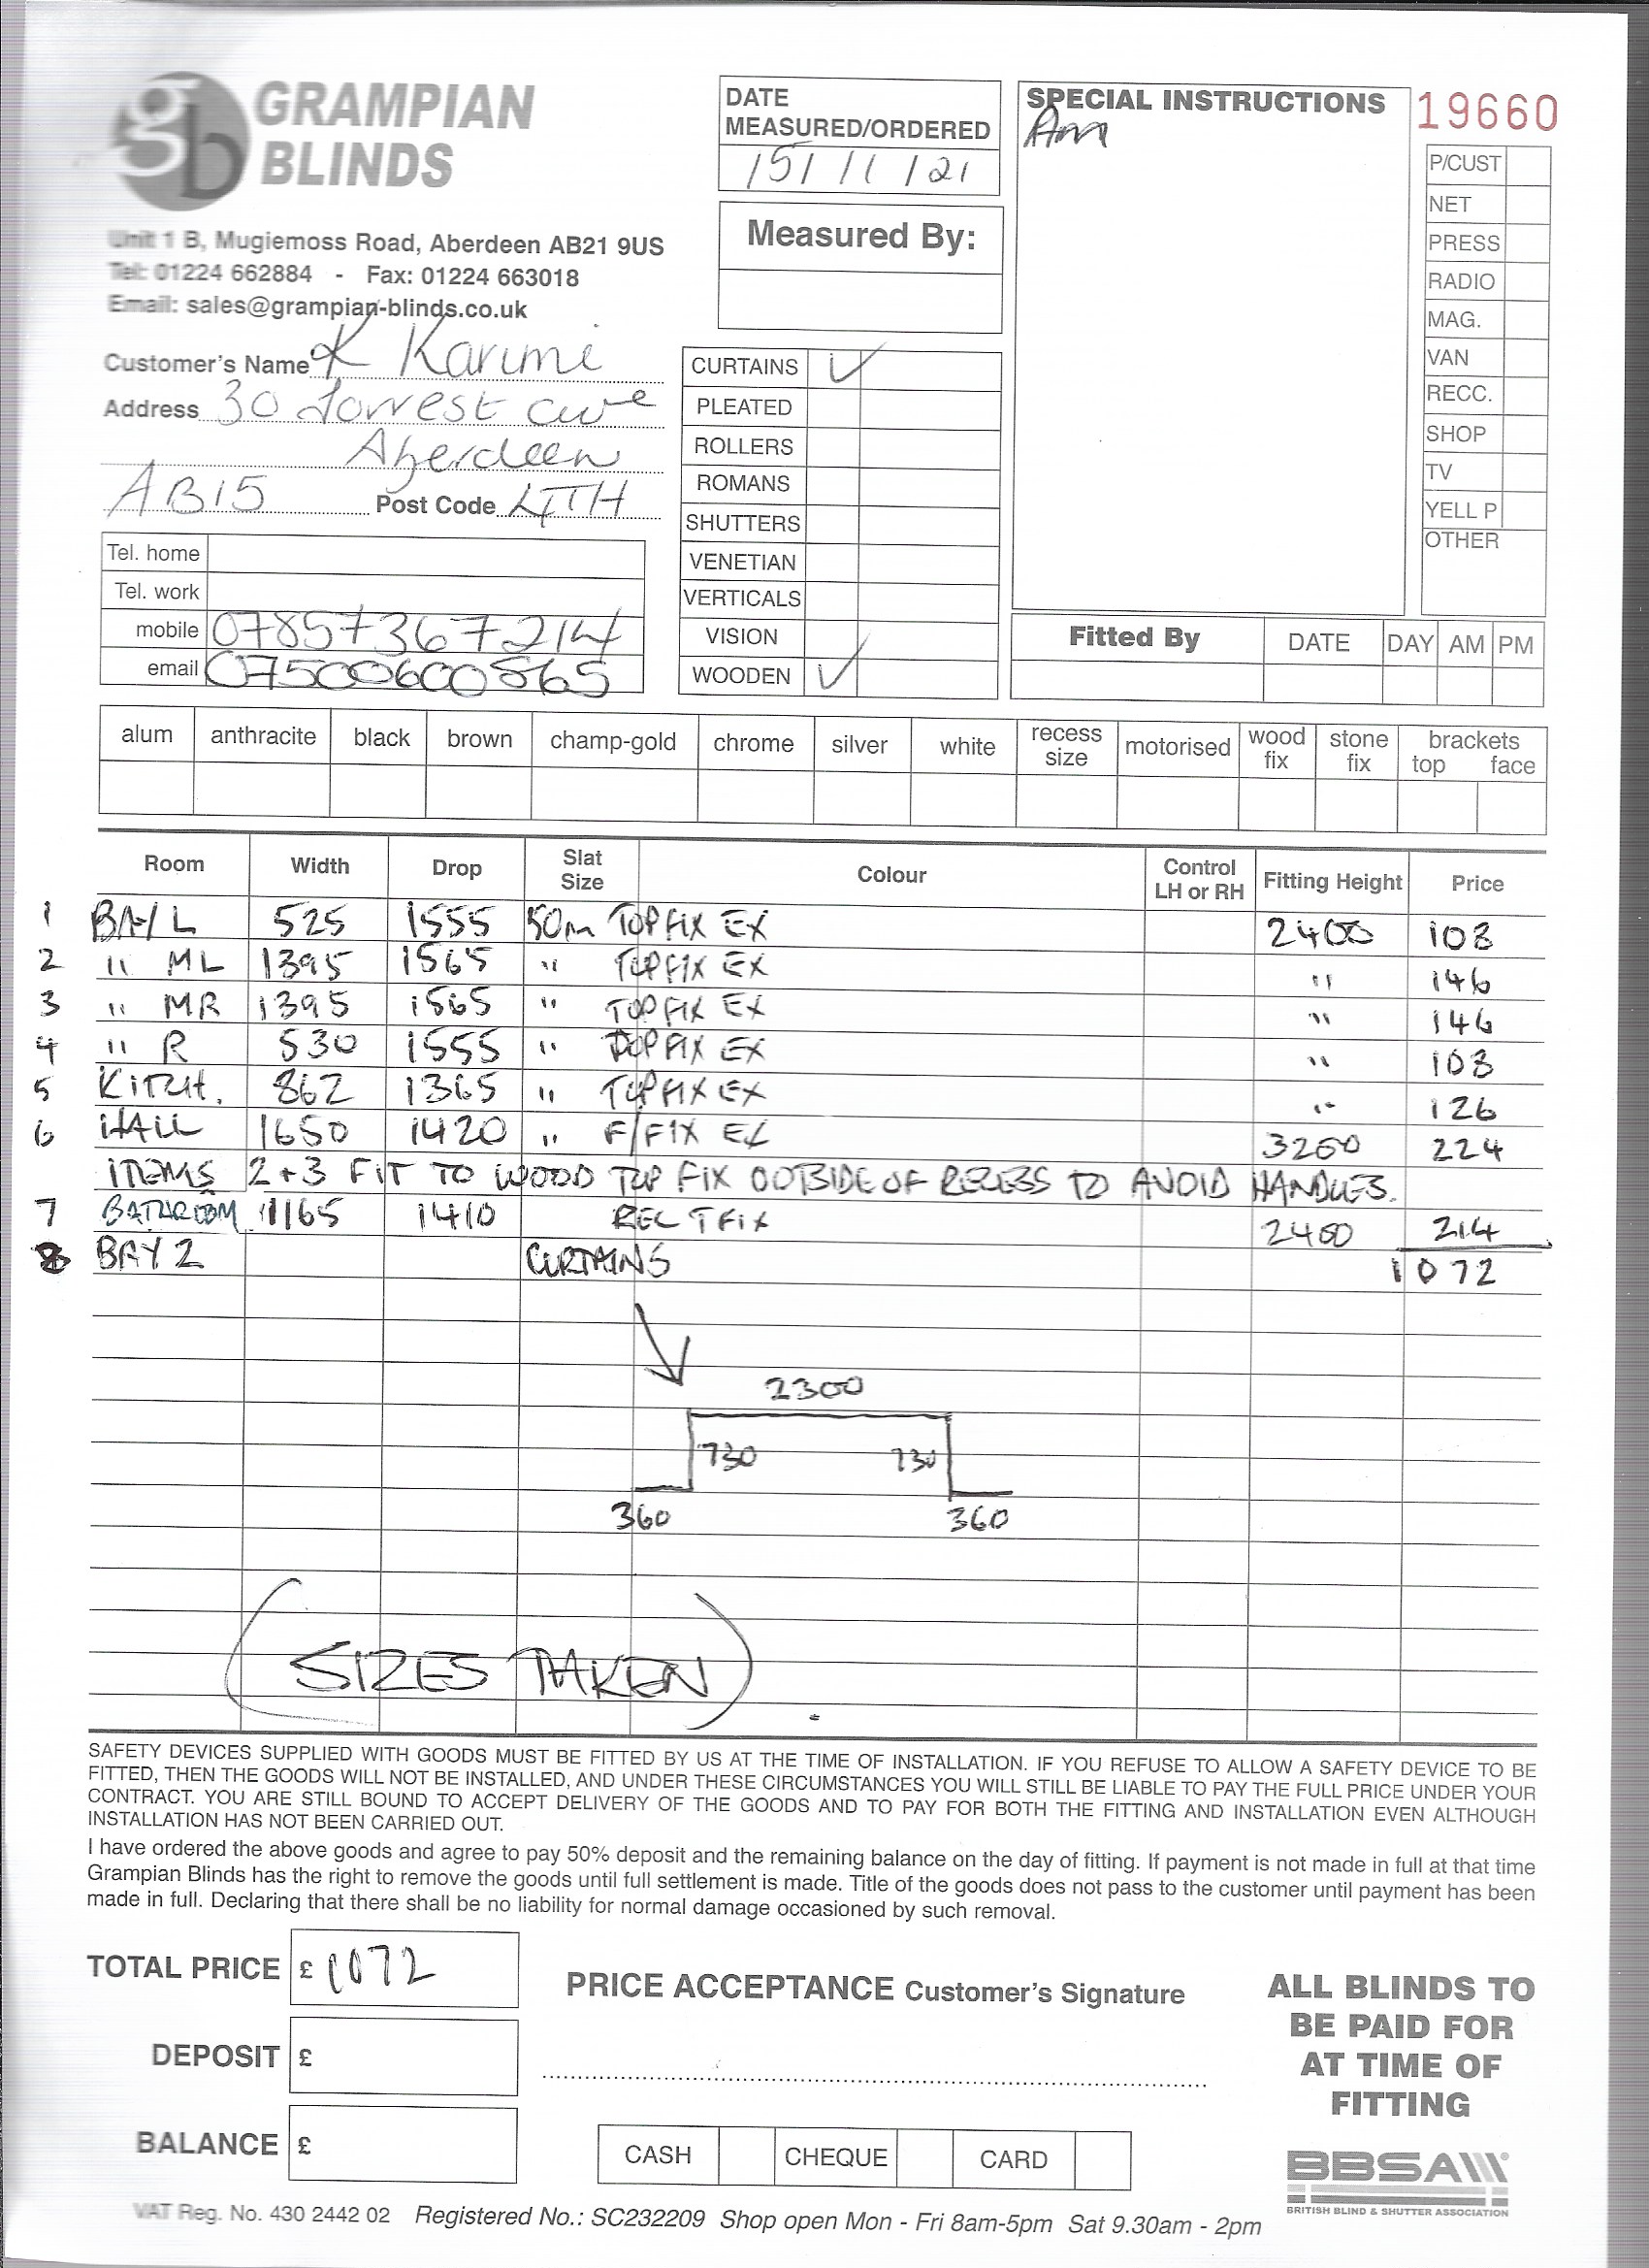 gb GRAMPIAN BLINDS
Unit 1 B, Mugiemoss Road, Aberdeen AB21 9US
Tel: 01224 662884 - Fax: 01224 663018
Email: sales@grampian-blinds.co.uk
DATE MEASURED/ORDERED
15/11/21
Measured By:
SPECIAL INSTRUCTIONS
Am
19660
P/CUST
NET
PRESS
RADIO
MAG.
VAN
RECC.
SHOP
TV
YELL P
OTHER
Customer's Name K Karimi
Address 30 Forrest ave
Aberdeen
AB15 Post Code 4TH
Tel. home
Tel. work
mobile 07857367214
email 07500600865
CURTAINS ✓
PLEATED
ROLLERS
ROMANS
SHUTTERS
VENETIAN
VERTICALS
VISION
WOODEN ✓
Fitted By DATE DAY AM PM
alum anthracite black brown champ-gold chrome silver white recess size motorised wood fix stone fix brackets top face
Room Width Drop Slat Size Colour Control LH or RH Fitting Height Price
1 BAY L 525 1555 50m TOP FIX EX 2400 108
2 " ML 1395 1565 " TOP FIX EX " 146
3 " MR 1395 1565 " TOP FIX EX " 146
4 " R 530 1555 " TOP FIX EX " 108
5 KITCH. 862 1365 " TOP FIX EX " 126
6 HALL 1650 1420 " F/FIX EX 3200 224
ITEMS 2+3 FIT TO WOOD TOP FIX OUTSIDE OF RECESS TO AVOID HANDLES.
7 BATHROOM 1165 1410 REC T FIX 2400 214
8 BAY 2 CURTAINS 1072
2300
730 730
360 360
(SIZES TAKEN)
SAFETY DEVICES SUPPLIED WITH GOODS MUST BE FITTED BY US AT THE TIME OF INSTALLATION. IF YOU REFUSE TO ALLOW A SAFETY DEVICE TO BE
FITTED, THEN THE GOODS WILL NOT BE INSTALLED, AND UNDER THESE CIRCUMSTANCES YOU WILL STILL BE LIABLE TO PAY THE FULL PRICE UNDER YOUR
CONTRACT. YOU ARE STILL BOUND TO ACCEPT DELIVERY OF THE GOODS AND TO PAY FOR BOTH THE FITTING AND INSTALLATION EVEN ALTHOUGH
INSTALLATION HAS NOT BEEN CARRIED OUT.
I have ordered the above goods and agree to pay 50% deposit and the remaining balance on the day of fitting. If payment is not made in full at that time
Grampian Blinds has the right to remove the goods until full settlement is made. Title of the goods does not pass to the customer until payment has been
made in full. Declaring that there shall be no liability for normal damage occasioned by such removal.
TOTAL PRICE £ 1072
DEPOSIT £
BALANCE £
PRICE ACCEPTANCE Customer's Signature
CASH CHEQUE CARD
ALL BLINDS TO
BE PAID FOR
AT TIME OF
FITTING
BBSA
BRITISH BLIND & SHUTTER ASSOCIATION
VAT Reg. No. 430 2442 02 Registered No.: SC232209 Shop open Mon - Fri 8am-5pm Sat 9.30am - 2pm